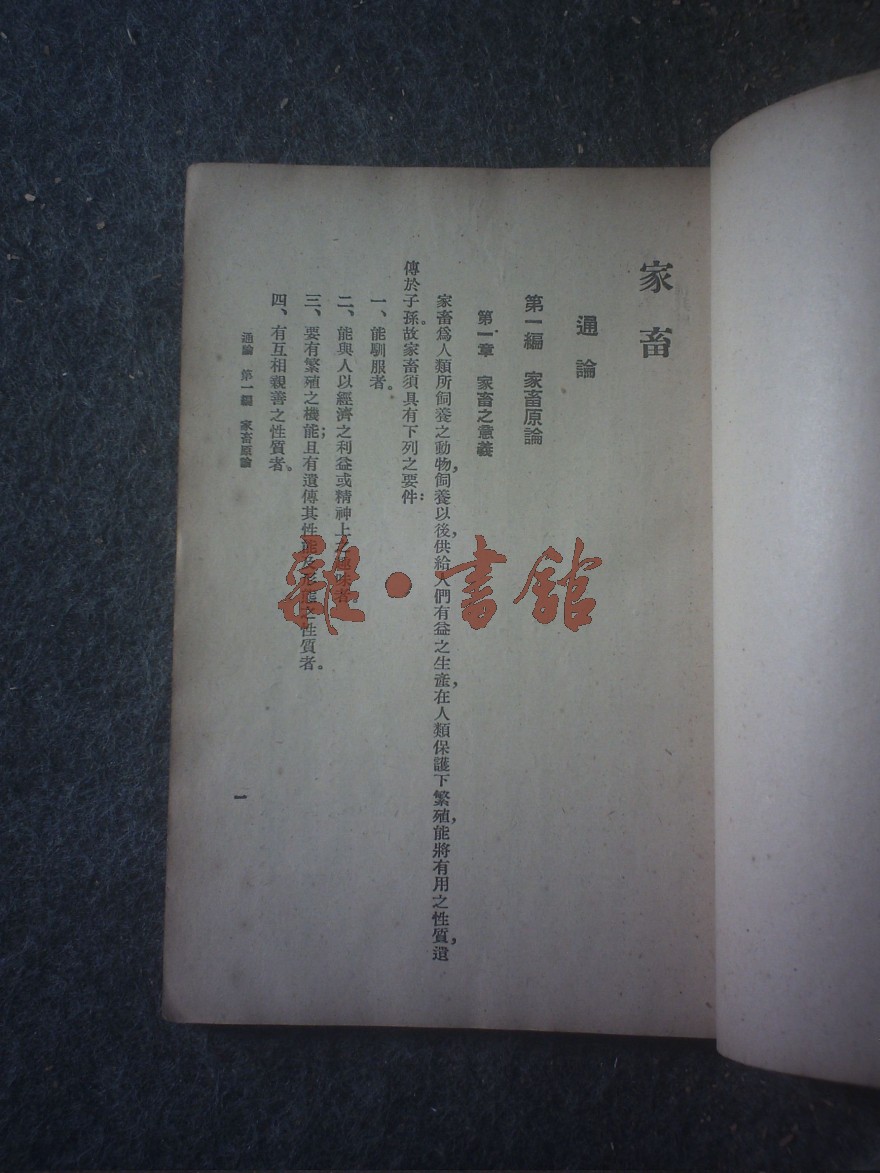 家畜
通論
第一編 家畜原論
第一章 家畜之意義
家畜爲人類所飼養之動物,飼養以後,供給人們有益之生產,在人類保護下繁殖,能將有用之性質,遺
傳於子孫。故家畜須具有下列之要件:
一、能馴服者。
二、能與人以經濟之利益或精神上之趣味者。
三、要有繁殖之機能;且有遺傳其性能及形態之性質者。
四、有互相親善之性質者。
通論 第一編 家畜原論
一
雜·書館